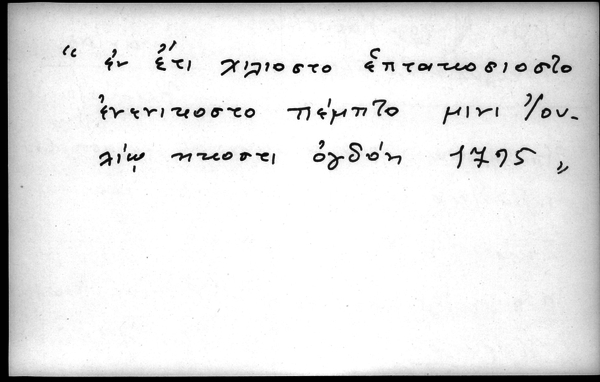 “ ἐν ἔτι χιλιοστο ἑπτακοσιοστο
ἐνενικοστο πέμπτο μινὶ Ἰου-
λίῳ ηκοστι ὀγδόη 1795 „